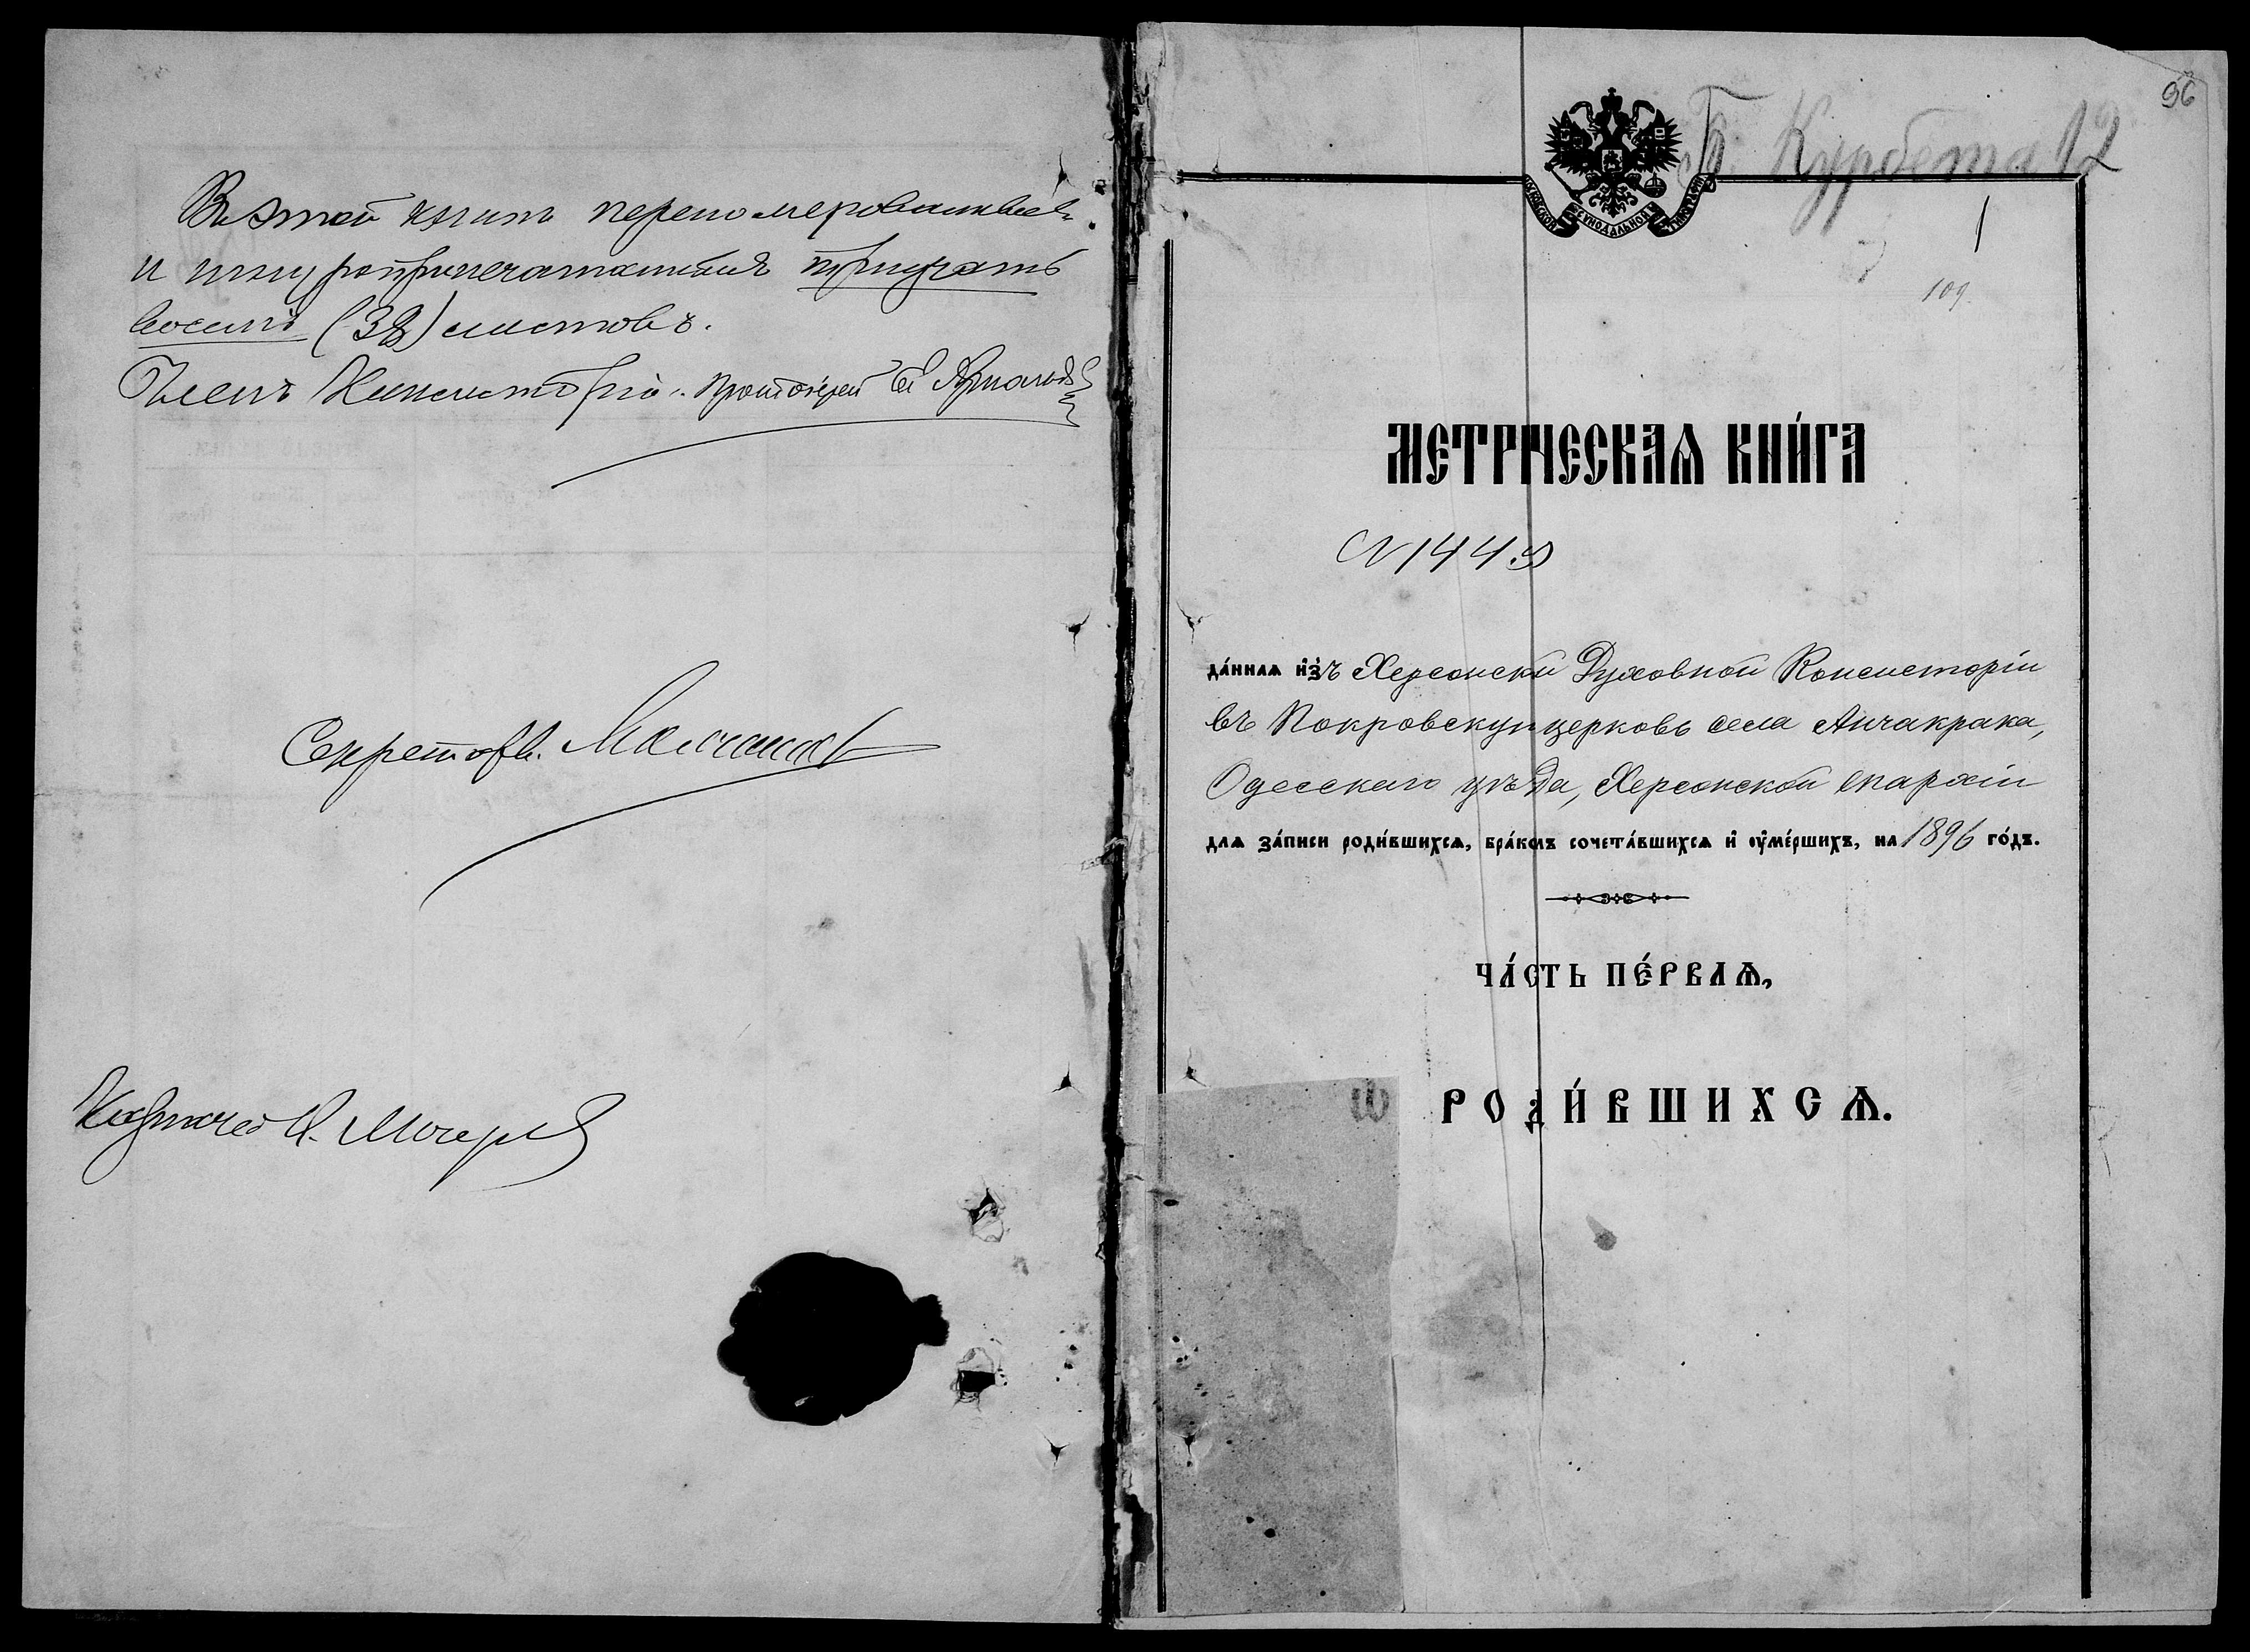 Въ этой книгѣ перенумерованныхъ
и шнуроприпечатанныхъ тридцать
восемь (38) листовъ.
Членъ Консисторіи: Протоіерей
Секретарь
Казначей
96
Курбета 12
1
109
МОСКОВСКОЙ СѴНОДАЛЬНОЙ ТИПОГРАФІИ
МЕТРИ́ЧЕСКАѦ КНИ́ГА
№ 1449
да́ннаѧ и҆зъ Херсонской Духовной Консисторіи
въ Покровскую церковь села Анчакрака,
Одесскаго уѣзда, Херсонской епархіи
для за́писи роди́вшихсѧ, бра́комъ сочета́вшихсѧ и҆ ᲂу҆ме́ршихъ, на 1896 го́дъ.
ЧА́СТЬ ПЕ́РВАѦ,
Ѡ РОДИ́ВШИХСѦ.